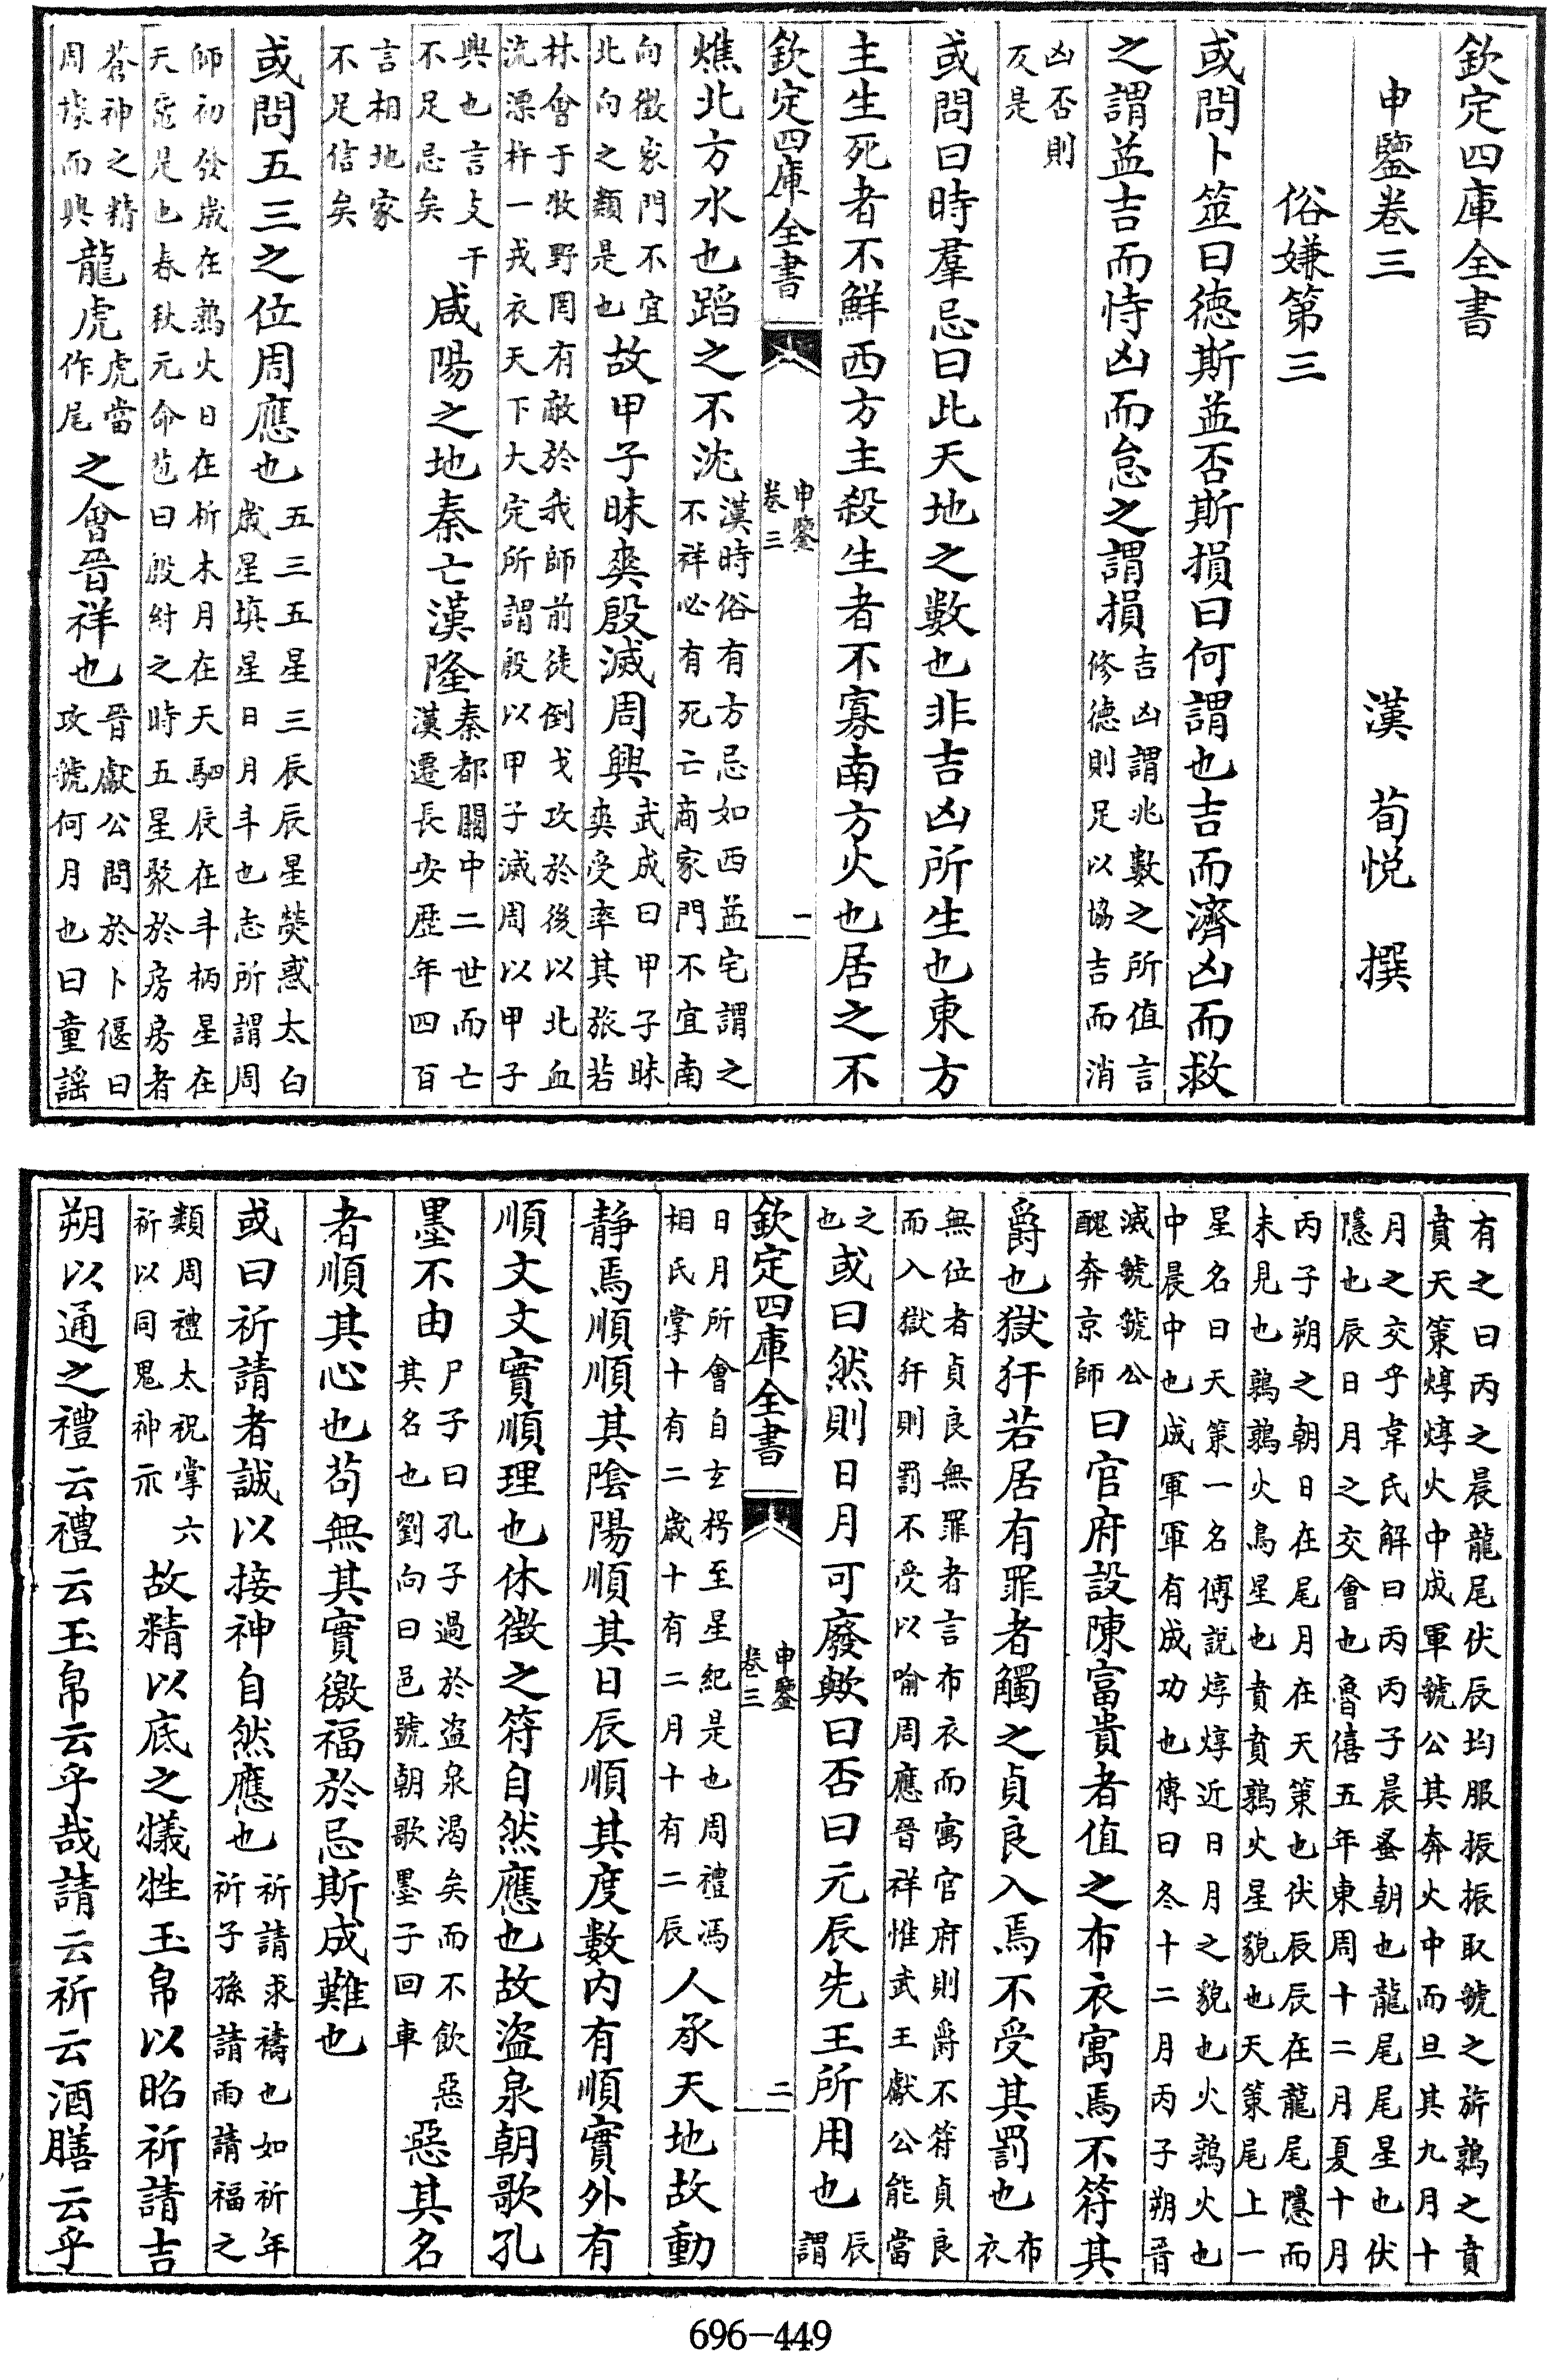 欽定四庫全書
申鑒卷三
漢 荀悦 撰
俗嫌第三
或問卜筮曰德斯益否斯損曰何謂也吉而濟凶而救
之謂益吉而恃凶而怠之謂損吉凶謂兆數之所值言修德則足以協吉而消
凶否則反是
或問曰時羣忌曰此天地之數也非吉凶所生也東方
主生死者不鮮西方主殺生者不寡南方火也居之不
欽定四庫全書
申鑒卷三
一
燋北方水也蹈之不沈漢時俗有方忌如西益宅謂之不祥必有死亡商家門不宜南
向徵家門不宜北向之類是也故甲子昧爽殷滅周興武成曰甲子昧爽受率其旅若
林會于牧野罔有敵於我師前徒倒戈攻於後以北血流漂杵一戎衣天下大定所謂殷以甲子滅周以甲子
興也言支干不足忌矣咸陽之地秦亡漢隆秦都關中二世而亡漢遷長安歷年四百
言相地家不足信矣
或問五三之位周應也五三五星三辰辰星熒惑太白歲星填星日月斗也志所謂周
師初發歲在鶉火日在析木月在天駟辰在斗柄星在天黿是也春秋元命苞曰殷紂之時五星聚於房房者
蒼神之精周據而興龍虎虎當作尾之會晉祥也晉獻公問於卜偃曰攻虢何月也曰童謡
有之曰丙之晨龍尾伏辰均服振振取虢之旂鶉之賁賁天策焞焞火中成軍虢公其奔火中而旦其九月十
月之交乎韋氏解曰丙丙子晨蚤朝也龍尾尾星也伏隱也辰日月之交會也魯僖五年東周十二月夏十月
丙子朔之朝日在尾月在天策也伏辰辰在龍尾隱而未見也鶉鶉火鳥星也賁賁鶉火星貌也天策尾上一
星名曰天策一名傅説焞焞近日月之貌也火鶉火也中晨中也成軍軍有成功也傳曰冬十二月丙子朔晉
滅虢虢公醜奔京師曰官府設陳富貴者值之布衣寓焉不符其
爵也獄犴若居有罪者觸之貞良入焉不受其罰也布衣
無位者貞良無罪者言布衣而寓官府則爵不符貞良而入獄犴則罰不受以喻周應晉祥惟武王獻公能當
之也或曰然則日月可廢歟曰否曰元辰先王所用也辰謂
欽定四庫全書
申鑒卷三
二
日月所會自玄枵至星紀是也周禮馮相氏掌十有二歲十有二月十有二辰人承天地故動
静焉順順其陰陽順其日辰順其度數内有順實外有
順文文實順理也休徵之符自然應也故盜泉朝歌孔
墨不由尸子曰孔子過於盜泉渴矣而不飲惡其名也劉向曰邑號朝歌墨子回車惡其名
者順其心也苟無其實徼福於忌斯成難也
或曰祈請者誠以接神自然應也祈請求禱也如祈年祈子孫請雨請福之
類周禮太祝掌六祈以同鬼神示故精以底之犧牲玉帛以昭祈請吉
朔以通之禮云禮云玉帛云乎哉請云祈云酒膳云乎
696-449